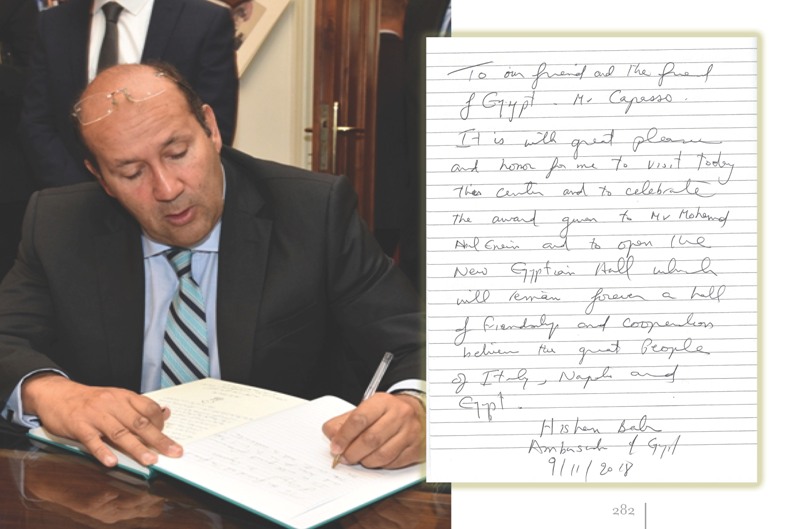 To our friend and the friend
of Egypt. Mr Capasso.
It is with great pleasure
and honor for me to visit today
this center and to celebrate
the award given to Mr Mohamed
and to open the
New Egyptian Hall which
will remain forever a hall
of friendship and cooperation
between the great People
of Italy, Napoli and
Egypt.
Hisham Badr
Ambassador of Egypt
9/11/2018
282